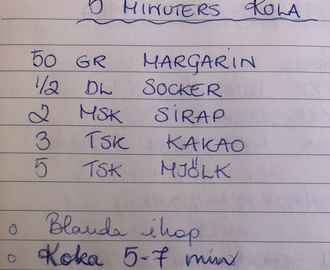 5 MINUTERS KOLA
50 GR MARGARIN
1/2 DL SOCKER
2 MSK SIRAP
3 TSK KAKAO
5 TSK MJÖLK
Blanda ihop
Koka 5-7 min